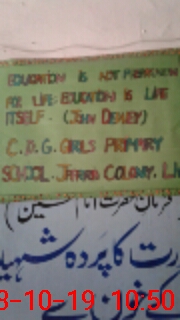 EDUCATION IS NOT PREPARATION
FOR LIFE: EDUCATION IS LIFE
ITSELF. (JOHN DEWEY)
C.D.G. GIRLS PRIMARY
SCHOOL. JAFFRIA COLONY.
رت کا پردہ شہید
کے خون سے
8-10-19 10:50